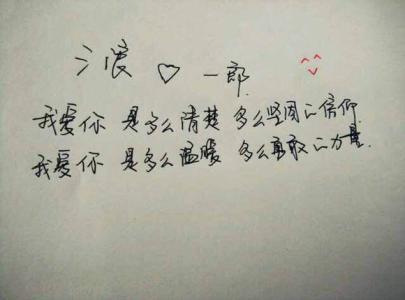 渡 ♡ 一郎
我爱你 是多么清楚 多么坚固的信仰.
我爱你 是多么温暖 多么勇敢的力量.